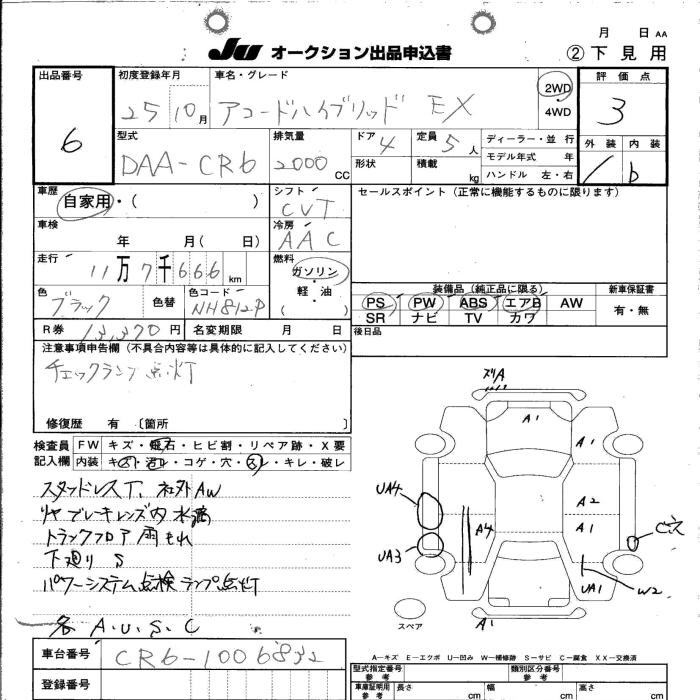 月 日 AA
JU オークション出品申込書 ② 下見用
出品番号 初度登録年月 車名・グレード 2WD 評価点
6 25 10月 アコードハイブリッド EX 4WD 3
型式 排気量 ドア 4 定員 5人 ディーラー・並行 外装 内装
DAA-CR6 2000CC 形状 積載 kg モデル年式 年 b
ハンドル 左・右
車歴 シフト セールスポイント(正常に機能するものに限ります)
自家用・( ) CVT
車検 冷房
年 月( 日) AAC
走行 燃料
11万7千666km ガソリン・軽油・( )
色 色替 色コード 装備品(純正品に限る) 新車保証書
ブラック NH812P PS PW ABS エアB AW 有・無
SR ナビ TV カワ
R券 13,370円 名変期限 月 日 後日品
注意事項申告欄(不具合内容等は具体的に記入してください)
チェックランプ点灯
修復歴 有 〔箇所 〕
検査員 FW キズ・飛石・ヒビ割・リペア跡・X要
記入欄 内装 キズ・汚レ・コゲ・穴・スレ・キレ・破レ
スタッドレスT. 社外AW
リヤブレーキレンズ内水滴
トラックフロア雨もれ
下廻り S
パワーシステム点検ランプ点灯
各 A.U.S.C
ズリA
A1
A1
UA4
A2
A1
A4
UA3
UA1
W2
A1
スペア
A-キズ E-エクボ U-凹み W-補修跡 S-サビ C-腐食 XX-交換済
車台番号 CR6-1006832
型式指定番号 参考 類別区分番号 参考
登録番号
車庫証明用 参考 長さ cm 幅 cm 高さ cm